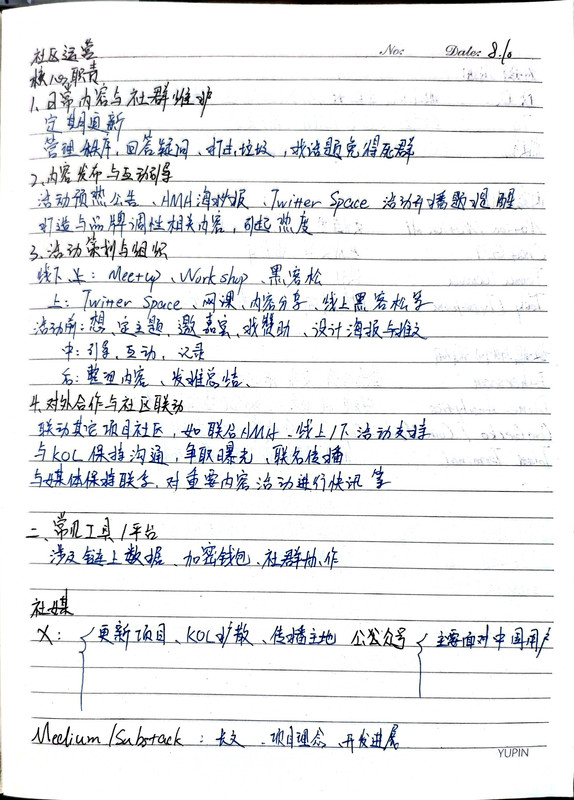 No: Date: 8.10
社区运营
核心职责
1、日常内容与社群维护
定期更新
管理秩序，回答疑问、打击垃圾，找话题免得死群
2、内容发布与互动引导
活动预热公告、AMA海报、Twitter Space 活动开播题提醒
打造与品牌调性相关内容，引起热度
3、活动策划与组织
线下：Meetup、Workshop、黑客松
上：Twitter Space、网课、内容分享、线上黑客松等
活动前：想、定主题、邀嘉宾、找赞助、设计海报与推文
中：引导、互动、记录
后：整理内容、发推总结、
4、对外合作与社区联动
联动其它项目社区，如联合AMA、线上/下活动支持
与KOL保持沟通，争取曝光、联名传播
与媒体保持联系，对重要内容活动进行快讯等
二、常见工具/平台
涉及链上数据、加密钱包、社群协作
社媒
X：{更新项目、KOL扩散、传播主地 公众号{主要面对中国用户
Medium/Substack：长文、项目理念、开发进展
YUPIN